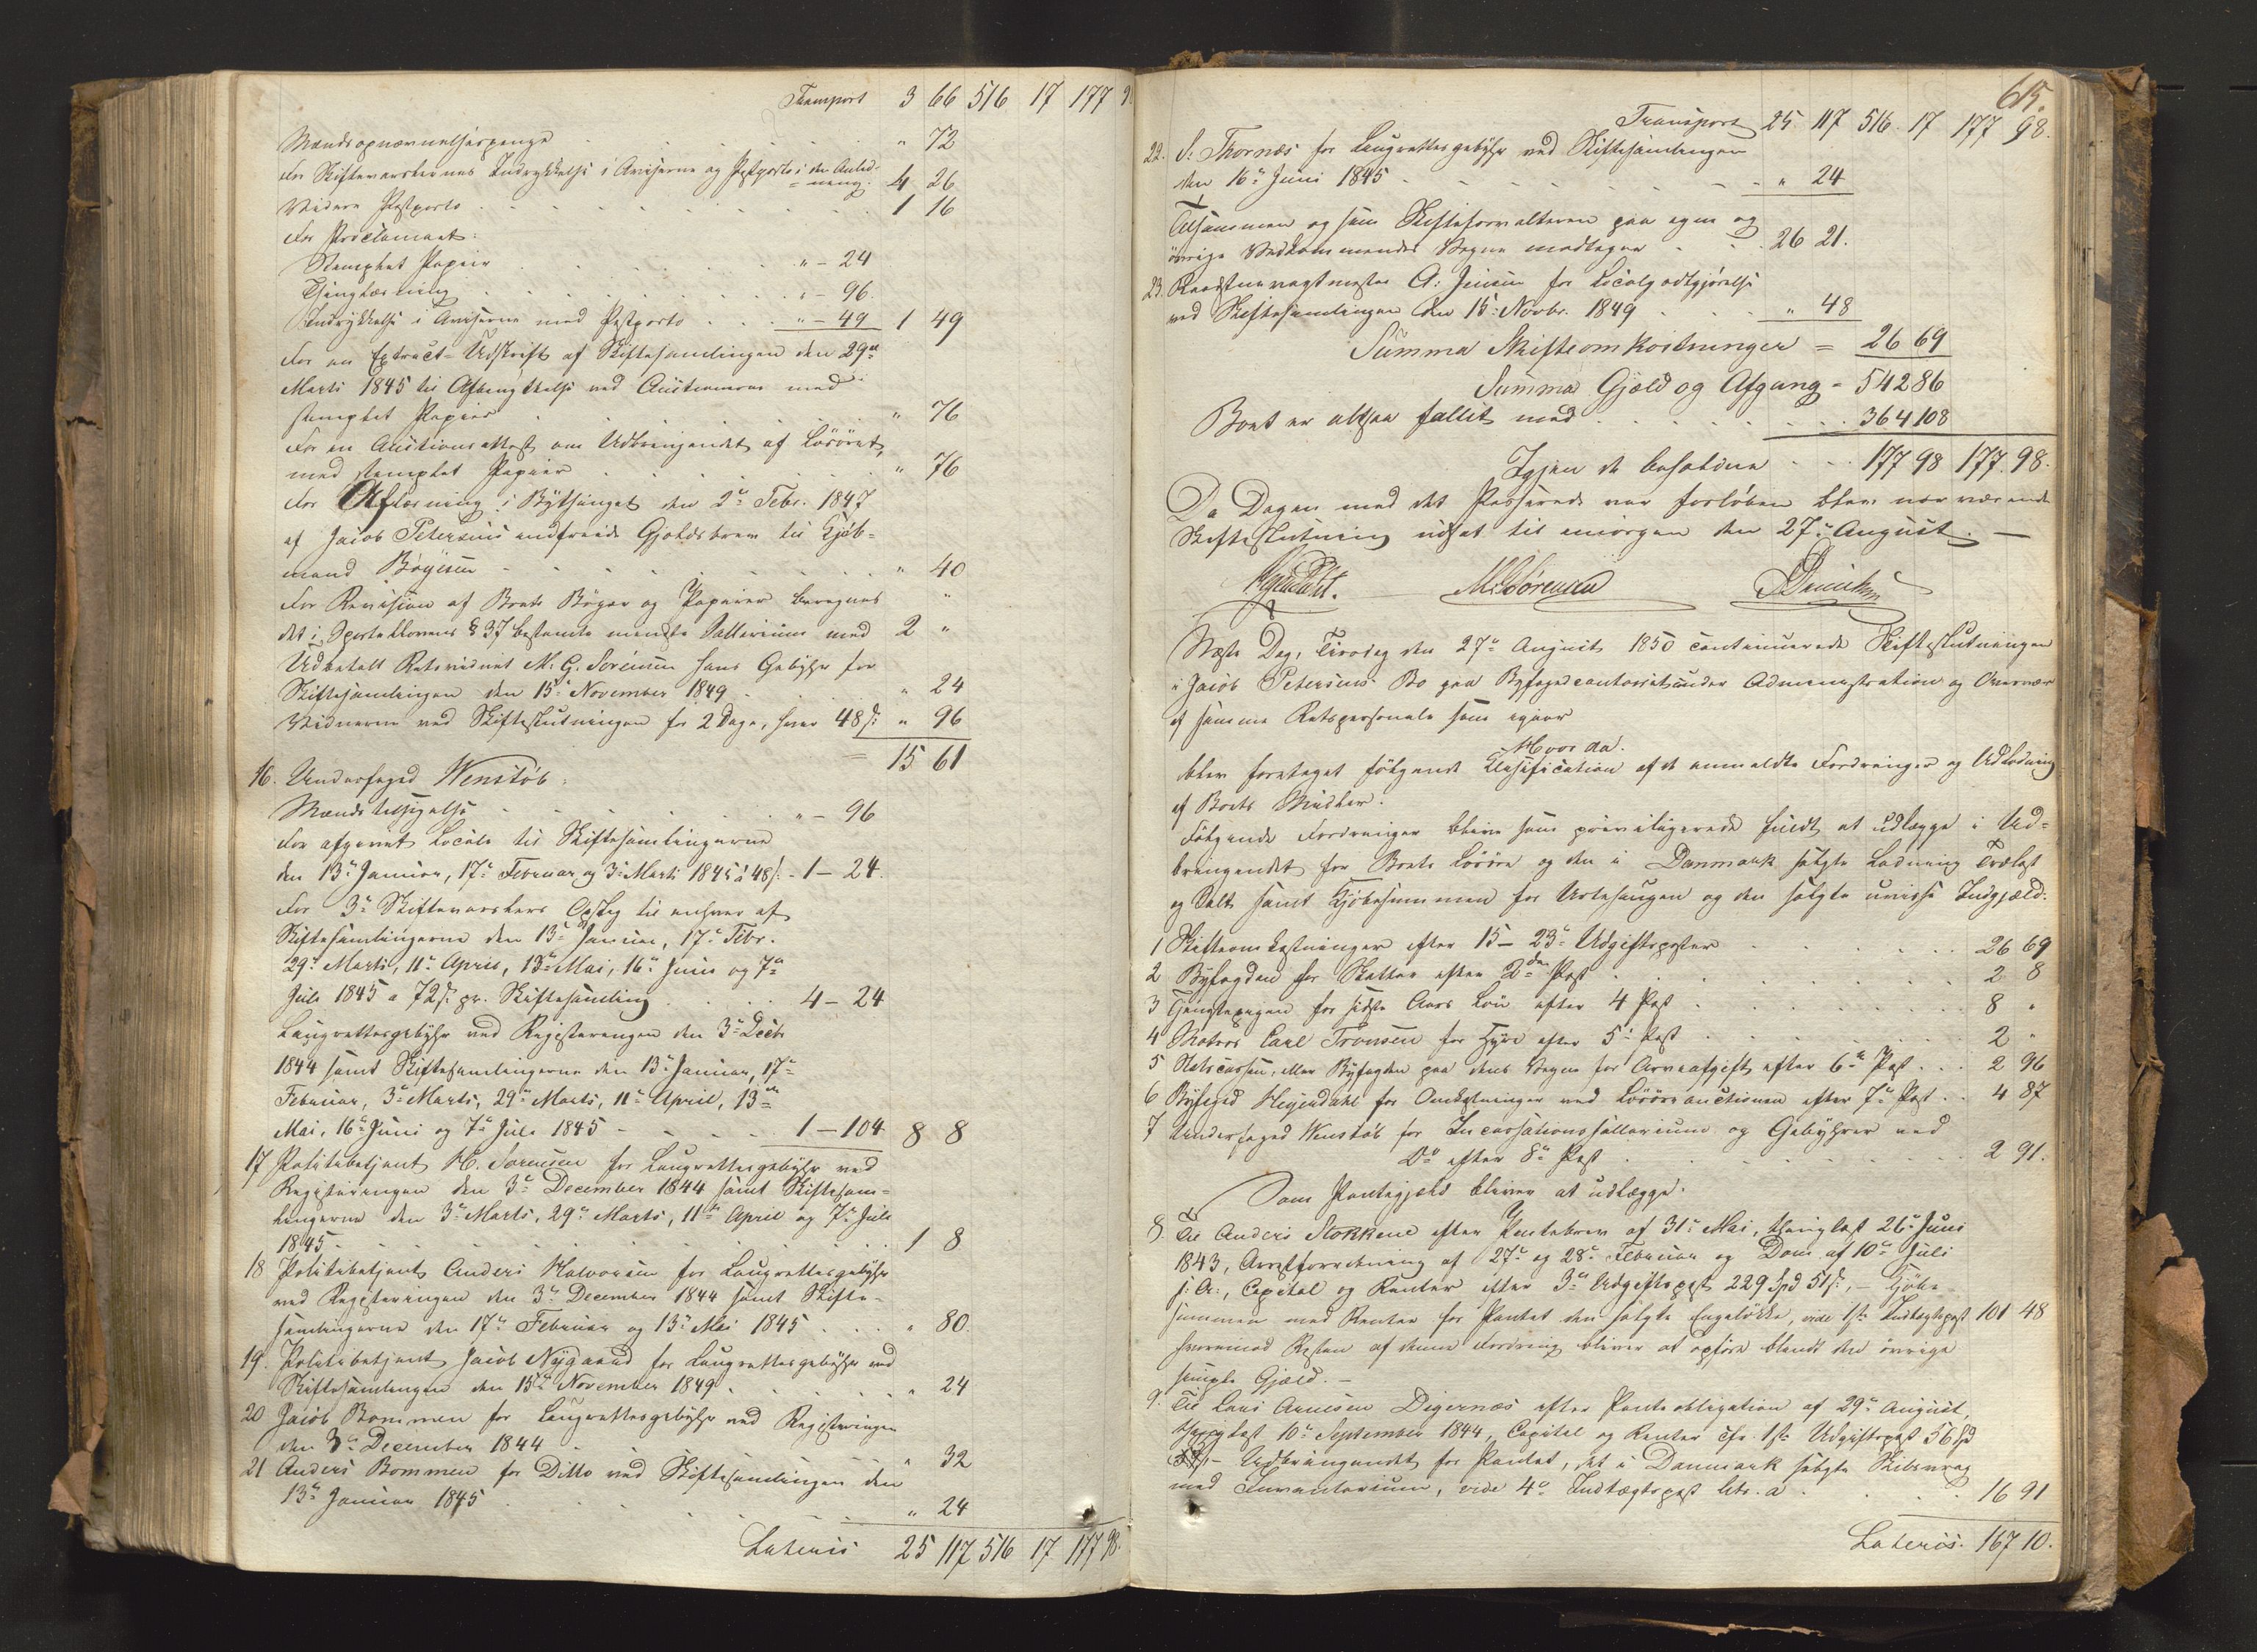 Transport 3 66 516 17 177 9
Mændsopnævnelsespenge " 72
For Skiftevarslernes Indrykkelse i Aviserne og Postporto i den Anled-
=ning. 4 26
Videre Postporto 1 16
For Proclamaet:
Stemplet Papiir " – 24
Thinglæsning " – 96.
Indrykkelse i Aviserne med Postporto " – 49 1 49
For en Extract-Udskrift af Skiftesamlingen den 29de
Marts 1845 til Afbenyttelse ved Auctionerne med
stemplet Papiir " 76
For en Auctionsattest om Udbringendet af Løsöret,
med stemplet Papiir " 76
For Aflæsning i Bythinget den 2de Febr. 1847
af Jacob Petersens indfriede Gjeldsbrev til Kjöb-
mand Böyesen " 40
For Revision af Boets Böger og Papirer beregnes "
det i Sportellovens § 37 bestemte mindste Sallerium med 2 "
Udbetalt Retsvidnet M. G. Sörensen hans Gebyhr for
Skiftesamlingen den 15de November 1849 " 24
Vidnerne ved Skifteslutningen for 2 Dage, hver 48 s: " 96
= 15 61
16. Underfoged Wenstöb:
Mænds tilsigelse " – 96
For afgivet Locale til Skiftesamlingerne
den 13de Januar, 17de Februar og 3de Marts 1845 à 48 s: - 1 – 24.
For 3de Skiftevarslers Opslag til enhver af
Skiftesamlingerne den 13de Januar, 17de Febr.
29de Marts, 11te April, 13de Mai, 16de Juni og 7de
Juli 1845 a 72 s: pr. Skiftesamling 4 – 24
Laugrettesgebyhr ved Registeringen den 3de Decbr
1844 samt Skiftesamlingerne den 13de Januar, 17de
Februar, 3de Marts, 29de Marts, 11te April, 13de
Mai, 16de Juni og 7de Juli 1845 1 – 104 8 8
17 Politibetjent H. Sørensen for Laugrettesgebyhr ved
Registeringen den 3de December 1844 samt Skiftesam-
lingerne den 3de Marts, 29de Marts, 11te April og 7de Juli
1845 1 8
18 Politibetjent Anders Halvorsen for Laugrettesgebyhr
ved Registeringen den 3de December 1844 samt Skifte-
samlingerne den 17de Februar og 13de Mai 1845 " 80.
19. Politibetjent Jacob Nygaard for Laugrettesgebyhr ved
Skiftesamlingen den 15de November 1849 " 24
20 Jacob Bommen for Laugrettesgebyhr ved Registeringen
den 3de December 1844 " 32
21 Anders Bommen for Ditto ved Skiftesamlingen den
13de Januar 1845 " 24
Lateris 25 117 516 17 177 98.
615.
Transport 25 117 516 17 177 98.
22. S. Thornæs for Laugrettesgebyhr ved Skiftesamlingen
den 16de Juni 1845 " 24
Tilsammen og som Skifteforvalteren paa egne og
övrige Vedkommendes Vegne modtager 26 21.
23. Raadstuevagtmester A: Jensen for Localgodtgjörelse
ved Skiftesamlingen den 15de Novbr. 1849 " 48
Summa Skifteomkostninger = 26 69
Summa Gjæld og Afgang = 542 86
Boet er altsaa fallit med 364 108
Igjen de beholdne 177 98 177 98.
Da Dagen med det Passerede var forlöben blev nærværende
Skifteslutning udsat til imorgen den 27de August. —
Heyerdahl. M. Sörensen
Næste Dag, Tirsdag den 27de August 1850 continuerede Skifteslutningen
i Jacob Petersens Bo paa Byfogedcontoiret under Administration og Overvær
af samme Retspersonale som igaar
Hvorda.
blev foretaget fölgende Classification af de anmeldte Fordringer og Udlodning
af Boets Midler.
Fölgende Fordringer blive som priviligerede fuldt at udlægge i Ud-
bringendet for Boets Lösöre og den i Danmark solgte Ladning Trælast
og Salt samt Kjöbesummen for Urtehaugen og den solgte uvisse Indgjæld:
1 Skifteomkostninger efter 15 – 23de Udgiftsposter 26 69
2 Byfogden for Skatter efter 2den Post 2 8
3 Tjenestepigen for sidste Aars Lön efter 4 Post 8 "
4 Matros Carl Tronsen for Hyre efter 5te Post 2 "
5 Statscassen, eller Byfogden paa dens Vegne for Arveafgift efter 6te Post 2 96
6 Byfoged Heyerdahl for Omkostninger ved Lösöreauctionen efter 7de Post 4 87
7 Underfoged Wenstöb for Incassationssallerium og Gebyhrer ved
Do efter 8de Post 2 91.
Som Pantegjæld bliver at udlægge.
8. Til Anders Stokkene efter Pantebrev af 31te Mai, thinglæst 26de Juni
1843, Arrestforretning af 27de og 28de Februar og Dom af 10de Juli
s: A:, Capital og Renter efter 3de Udgiftspost 229 Spd 51 s:, – Kjöbe-
summen med Renter for Pantet den solgte Engelökke, vide 1ste Indtægtspost 101 48
hvorimod Resten af denne Fordring bliver at opföre blandt den övrige
simple Gjæld. –
9. Til Lars Arnesen Digernæs efter Panteobligation af 29de August,
thinglæst 10de September 1844, Capital og Renter cfr. 1ste Udgiftspost 56 Spd
Udbringendet for Pantet, det i Danmark solgte Skibsvrag
med Inventarium, vide 4de Indtægtspost litr. a 16 91
Lateris. 167 10.